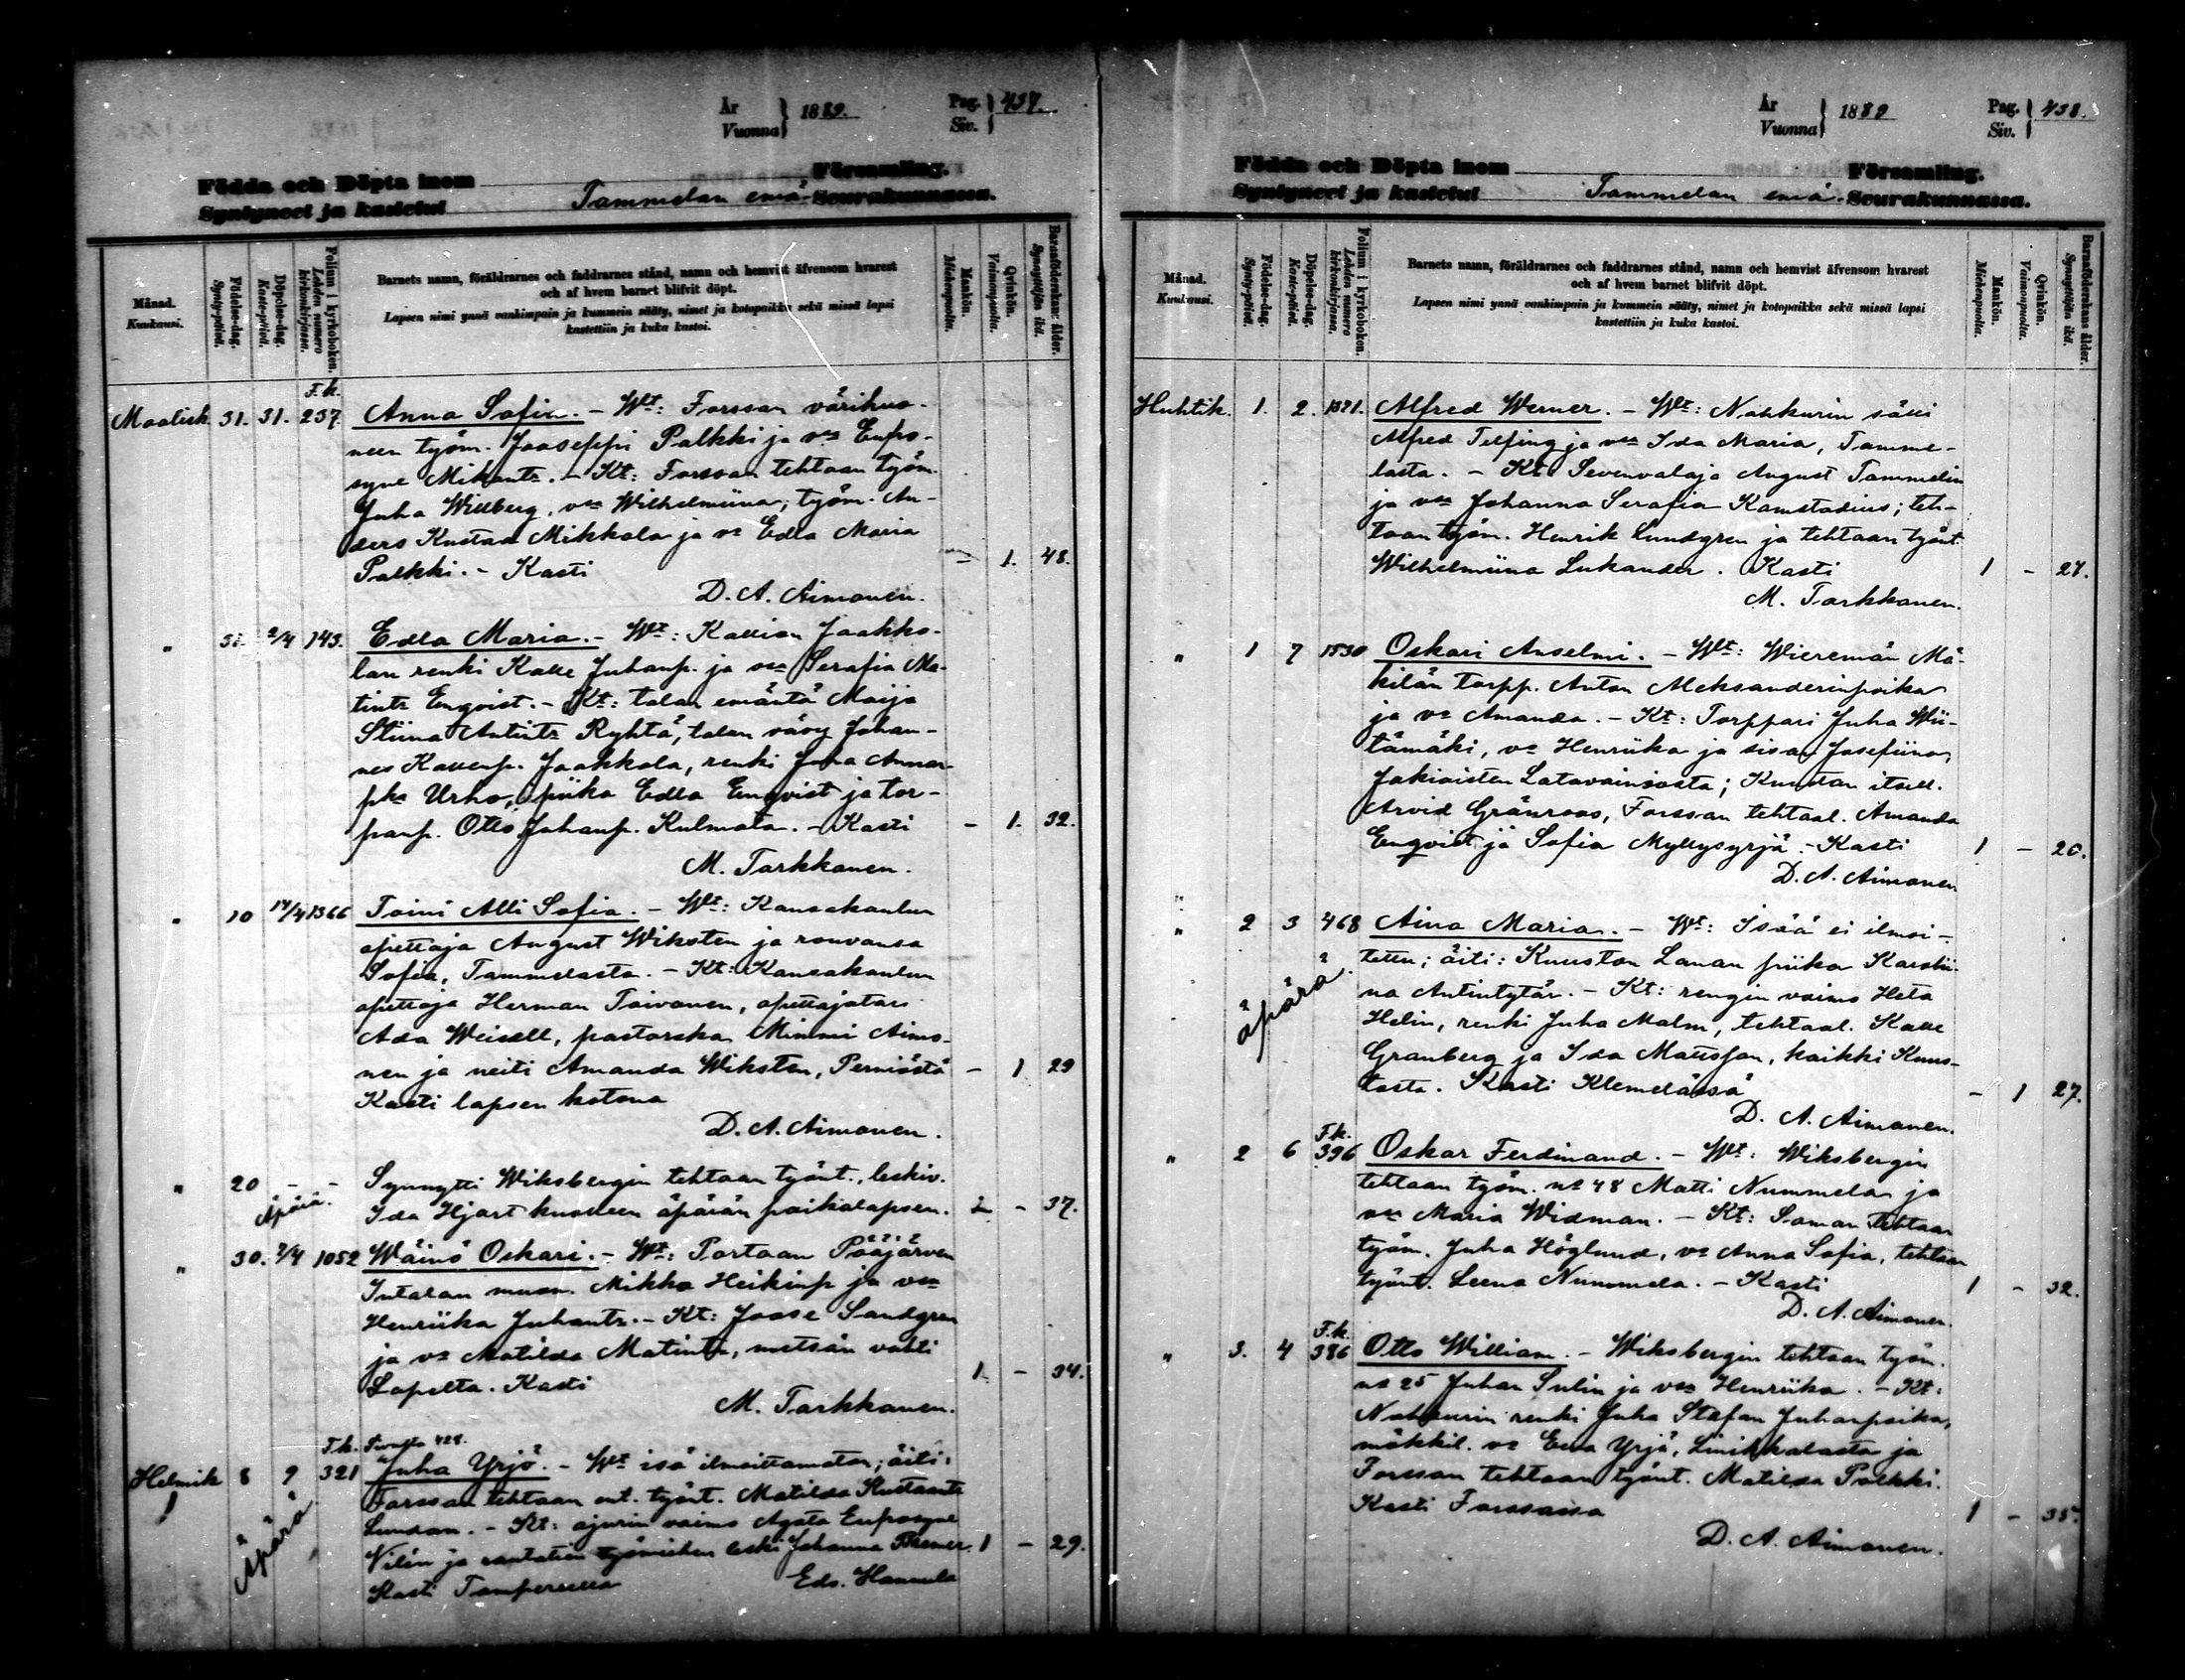 År
Vuonna } 1889.
Pag.
Siv. } 437.
Födda och Döpta inom
Syntyneet ja kastetut
Tammelan emä-
Församling.
Seurakunnassa.
Månad.
Kuukausi.
Födelse-dag.
Synty-päivä.
Döpelse-dag.
Kaste-päivä.
Folium i kyrkoboken.
Lehden numero kirkonkirjassa.
Barnets namn, föräldrarnes och faddrarnes stånd, namn och hemvist äfvensom hvarest
och af hvem barnet blifvit döpt.
Lapsen nimi ynnä vanhimpain ja kummein sääty, nimet ja kotopaikka sekä missä lapsi
kastettiin ja kuka kastoi.
Mankön.
Miehenpuolia.
Qvinkön.
Vaimonpuolia.
Barnaföderskans ålder.
Synnyttäjän ikä.
F.k.
Maalisk. 31. 31. 237. Anna Sofia. – Wt: Forssan värihuo-
neen työm. Jooseppi Palkki ja vo Eufro-
syne Mikontr. – Kt: Forssan tehtaan työm.
Juha Willberg, vo Wilhelmiina; työm. An-
ders Kustaa Mikkola ja vo Edla Maria
Palkki. – Kasti – 1. 48.
D. A. Aimonen.
" 31. 2/4 143. Edla Maria. – Wt: Kallion Jaakko-
lan renki Kalle Juhanp. ja vo Serafia Ma-
tintr Enqvist. – Kt: talon emäntä Maija
Stiina Antintr Ryhtä, talon vävy Johan-
nes Kallenp. Jaakkola, renki Juha Annan
pka Urho, piika Edla Enqvist ja tor-
panp. Otto Juhanp. Kulmala. – Kasti – 1. 32.
M. Tarkkanen.
" 10 14/4 1366 Toini Alli Sofia. – Wt: Kansakoulun
opettaja August Wiksten ja rouvansa
Sofia, Tammelasta. – Kt: Kansakoulun
opettaja Herman Toivonen, opettajatar
Ada Weisell, pastorska Mimmi Aimo-
nen ja neiti Amanda Wiksten, Perniöstä – 1 29
Kasti lapsen kotona
D. A. Aimonen.
" 20 – – Synnytti Wiksbergin tehtaan työnt., leskiv.
Äpärä. Ida Hjort kuolleen äpärän poikalapsen. 1 – 37.
" 30. 2/4 1052 Wäinö Oskari. – Wt: Portaan Pääjärven
Intalan muon. Mikko Heikinp ja vo
Henriika Juhantr. – Kt: Joose Sandgren
ja vo Matilda Matintr, metsän vahti
Lopelta. Kasti 1 – 34.
M. Tarkkanen.
F.k. 428.
Helmik 8 9 321 Juha Yrjö. – Wt isä ilmoittamaton; äiti:
Äpärä
Forssan tehtaan ent. työnt. Matilda Kustaantr
Lundan. – Kt: ajurin vaimo Agata Eufrosyne
Nilin ja rautatien työmiehen leski Johanna Bremer. 1 – 29.
Kasti Tampereella Edv. Hannula
År
Vuonna } 1889
Pag.
Siv. } 438.
Födda och Döpta inom
Syntyneet ja kastetut
Tammelan emä-
Församling.
Seurakunnassa.
Månad.
Kuukausi.
Födelse-dag.
Synty-päivä.
Döpelse-dag.
Kaste-päivä.
Folium i kyrkoboken.
Lehden numero kirkonkirjassa.
Barnets namn, föräldrarnes och faddrarnes stånd, namn och hemvist äfvensom hvarest
och af hvem barnet blifvit döpt.
Lapsen nimi ynnä vanhimpain ja kummein sääty, nimet ja kotopaikka sekä missä lapsi
kastettiin ja kuka kastoi.
Mankön.
Miehenpuolia.
Qvinkön.
Vaimonpuolia.
Barnaföderskans ålder.
Synnyttäjän ikä.
Huhtik. 1. 2. 1371. Alfred Werner. – Wt: Nahkurin sälli
Alfred Telfing ja vo Ida Maria, Tamme-
lasta. – Kt Sevenvalaja August Tammelin
ja vo Johanna Serafia Kamstadius; teh-
taan työm. Henrik Lundgren ja tehtaan työnt.
Wilhelmiina Lukander. Kasti 1 – 27.
M. Tarkkanen.
" 1 7 1530 Oskari Anselmi. – Wt: Wieremän Mä-
kilän torpp. Anton Aleksanderinpoika
ja vo Amanda. – Kt: Torppari Juha Wii-
tämäki, vo Henriika ja sisar Josefiina
Jokioisten Latovainiosta; Kuuston itsell.
Arvid Grönroos, Forssan tehtaal. Amanda
Enqvist ja Sofia Myllysyrjä. – Kasti 1 – 20.
D. A. Aimonen
" 2 3 468 Aina Maria. – Wt: Isää ei ilmoi-
äpärä
tettu; äiti: Kuuston Lanan piika Karolii-
na Antintytär. – Kt: rengin vaimo Heta
Helin, renki Juha Malm, tehtaal. Kalle
Granberg ja Ida Mattsson, kaikki Kuus-
tosta. Kasti Klemelässä – 1 27.
D. A. Aimonen.
F.k.
" 2 6 396 Oskar Ferdinand. – Wt: Wiksbergin
tehtaan työm. no 48 Matti Nummela ja
vo Maria Widman. – Kt: Saman tehtaan
työm. Juha Höglund, vo Anna Sofia, tehtaan
työnt. Leena Nummela. – Kasti 1 – 32.
D. A. Aimonen.
F.k.
" 3. 4 386 Otto William. – Wiksbergin tehtaan työm.
no 25 Juhan Sulin ja vo Henriika. – Kt:
Nahkurin renki Juho Stefan Juhanpoika,
mökkil. vo Eeva Yrjä, Linikkalasta ja
Forssan tehtaan työnt. Matilda Palkki.
Kasti Forssassa 1 – 35.
D. A. Aimonen.